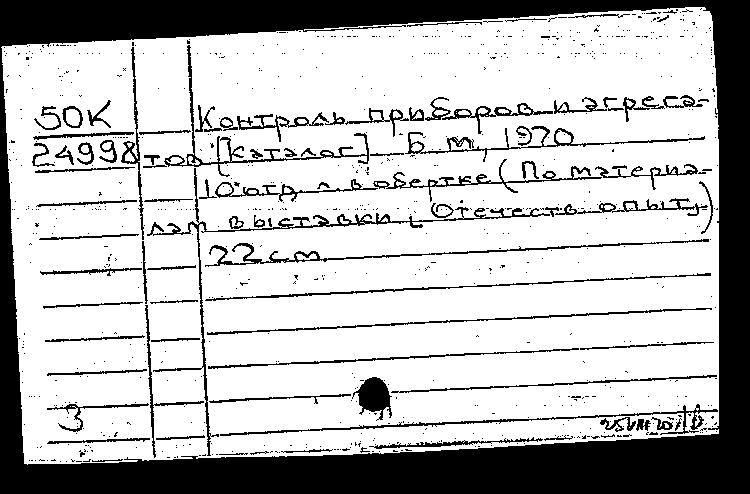 50К Контроль приборов и агрега-
24998 тов [Каталог] Б м, 1970
10 отд л в обертке (По материа-
лам выставки, Отечеств опыту)
22 см.
3